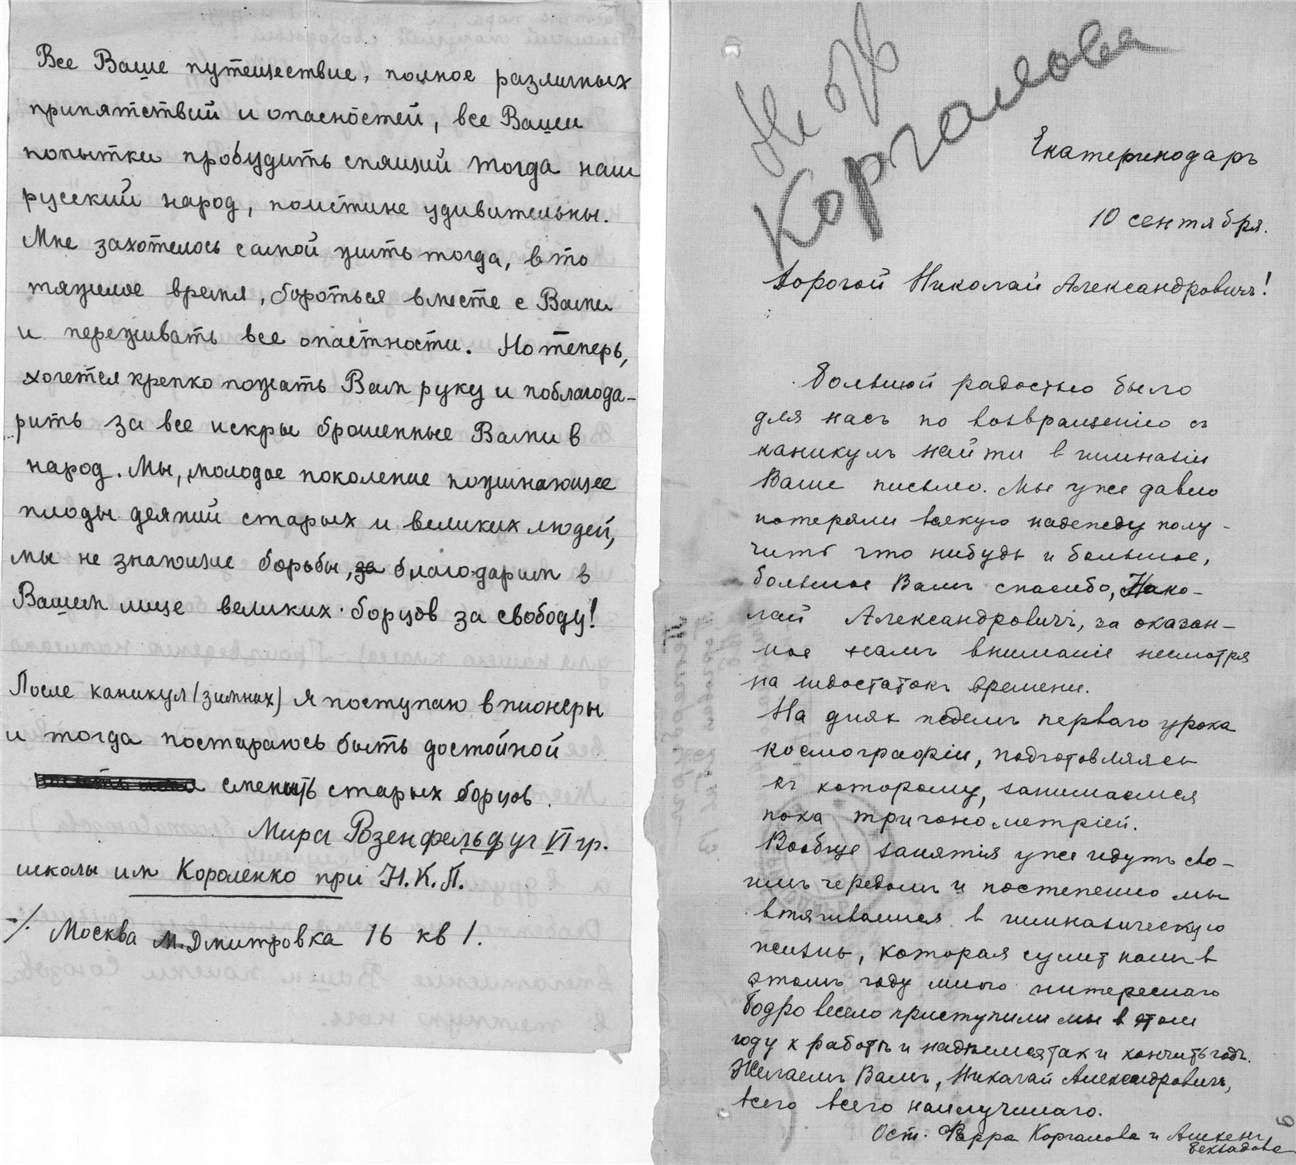 Все Ваше путешествие, полное различных
припятствий и опасностей, все Ваши
попытки пробудить спящий тогда наш
русский народ, поистине удивительны.
Мне захотелось самой жить тогда, в то
тяжелое время, бороться вместе с Вами
и переживать все опастности. Но теперь,
хочется крепко пожать Вам руку и поблагода-
рить за все искры брошенные Вами в
народ. Мы, молодое поколение пожинающее
плоды деяний старых и великих людей,
мы не знающие борьбы, за благодарим в
Вашем лице великих борцов за свободу!
После каникул (зимних) я поступаю в пионеры
и тогда постараюсь быть достойной
сменить старых борцов.
Мира Розенфельд уч VI гр.
школы им Короленко при Н.К.П.
Москва М. Дмитровка 16 кв 1.
Не отв
Коргалова
Екатеринодаръ
10 сентября.
Дорогой Николай Александровичъ!
Большой радостью было
для насъ по возвращенію съ
каникулъ найти в гимназіи
Ваше письмо. Мы уже давно
потеряли всякую надежду полу-
чить что нибудь и большое,
большое Вамъ спасибо, Нико-
лай Александровичъ, за оказан-
ное намъ вниманіе несмотря
на недостатокъ времени.
На дняхъ ждемъ перваго урока
космографіи, подготовляясь
къ которому, занимаемся
пока тригонометріей.
Вообще занятія уже идутъ сво-
имъ чередомъ и постепенно мы
втягиваемся в гимназическую
жизнь, которая сулит намъ в
этомъ году много интереснаго
Бодро весело приступили мы в этом
году к работѣ и надѣемся так и кончить годъ.
Желаемъ Вамъ, Николай Александровичъ,
всего всего наилучшаго.
Ост. Фарра Коргалова и Ашхенъ
Бекзадова